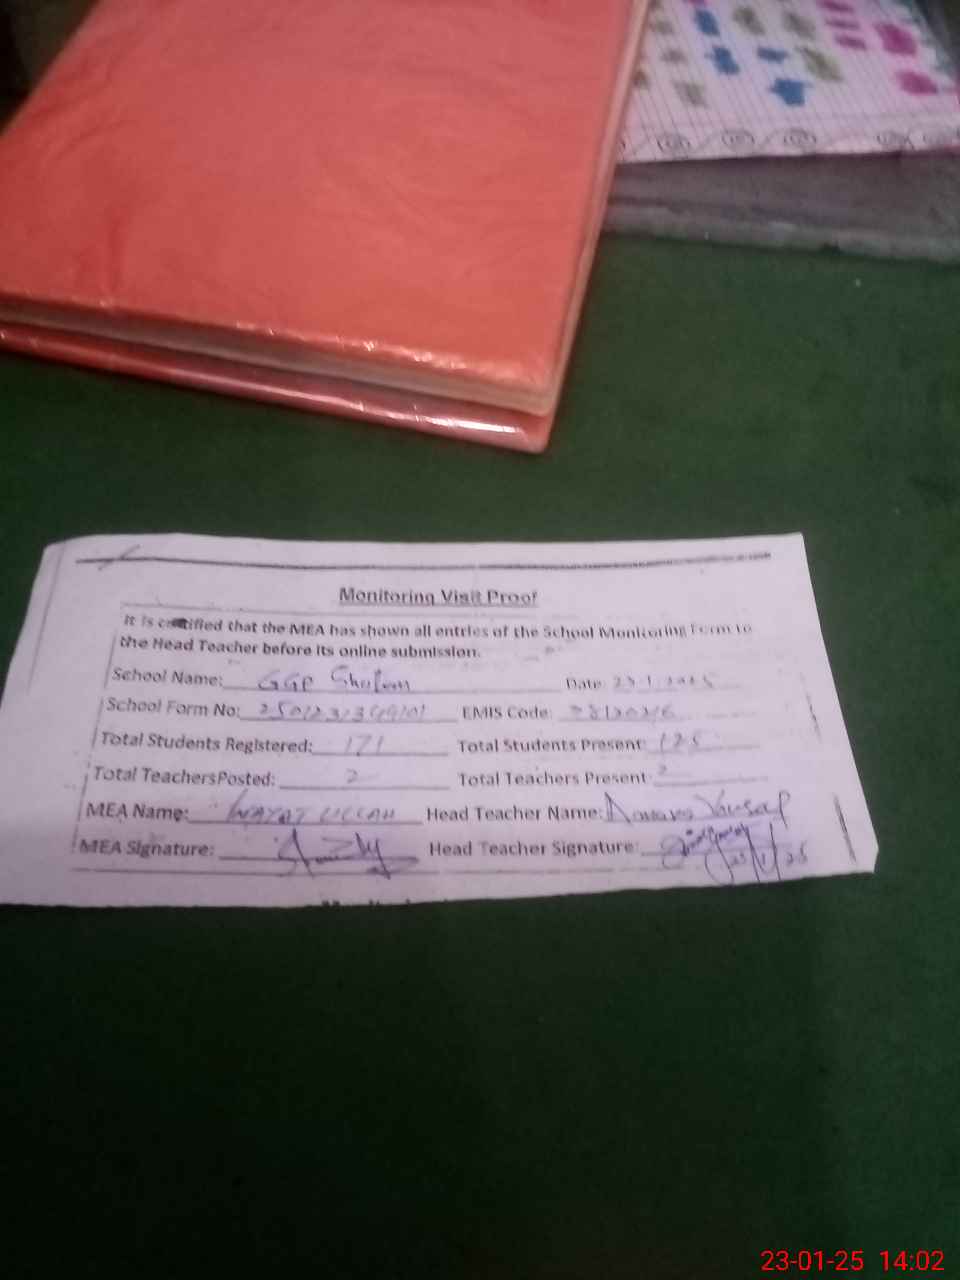 Monitoring Visit Proof
It is certified that the MEA has shown all entries of the School Monitoring Form to
the Head Teacher before its online submission.
School Name: GGP Date: 23-1-2025
School Form No: EMIS Code:
Total Students Registered: 171 Total Students Present: 125
Total Teachers Posted: 2 Total Teachers Present: 2
MEA Name: ULLAH Head Teacher Name: Yousaf
MEA Signature: Head Teacher Signature: 23/1/25
23-01-25 14:02